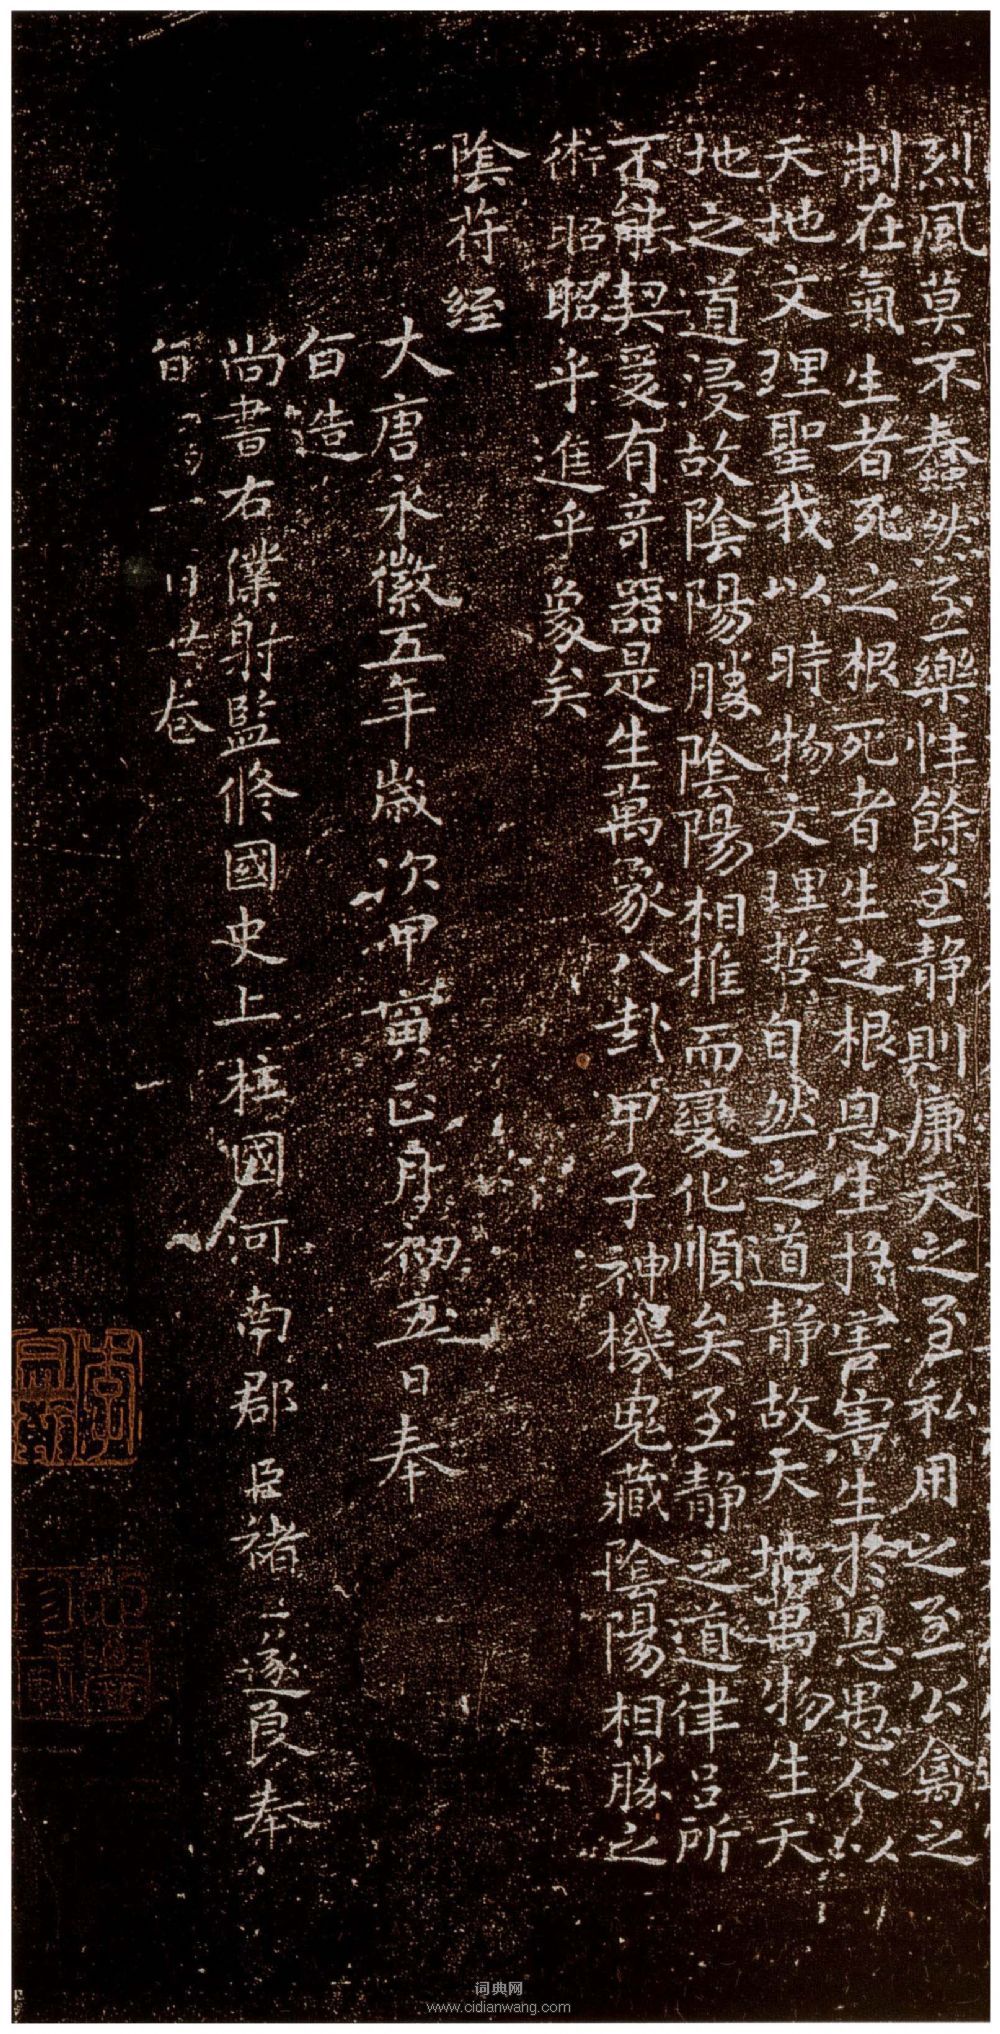 烈風莫不蠢然至樂性餘至静則廉天之至私用之至公禽之
制在氣生者死之根死者生之根恩生於害害生於恩愚人以
天地文理聖我以時物文理哲自然之道静故天地萬物生天
地之道浸故陰陽勝陰陽相推而變化順矣至静之道律呂所
不能契爰有奇器是生萬象八卦甲子神機鬼藏陰陽相勝之
術昭昭乎進乎象矣
陰符経
大唐永徽五年歲次甲寅正月初五日奉
旨造
尚書右僕射監修國史上柱國河南郡臣褚遂良奉
旨寫一百廿卷
词典网
www.cidianwang.com